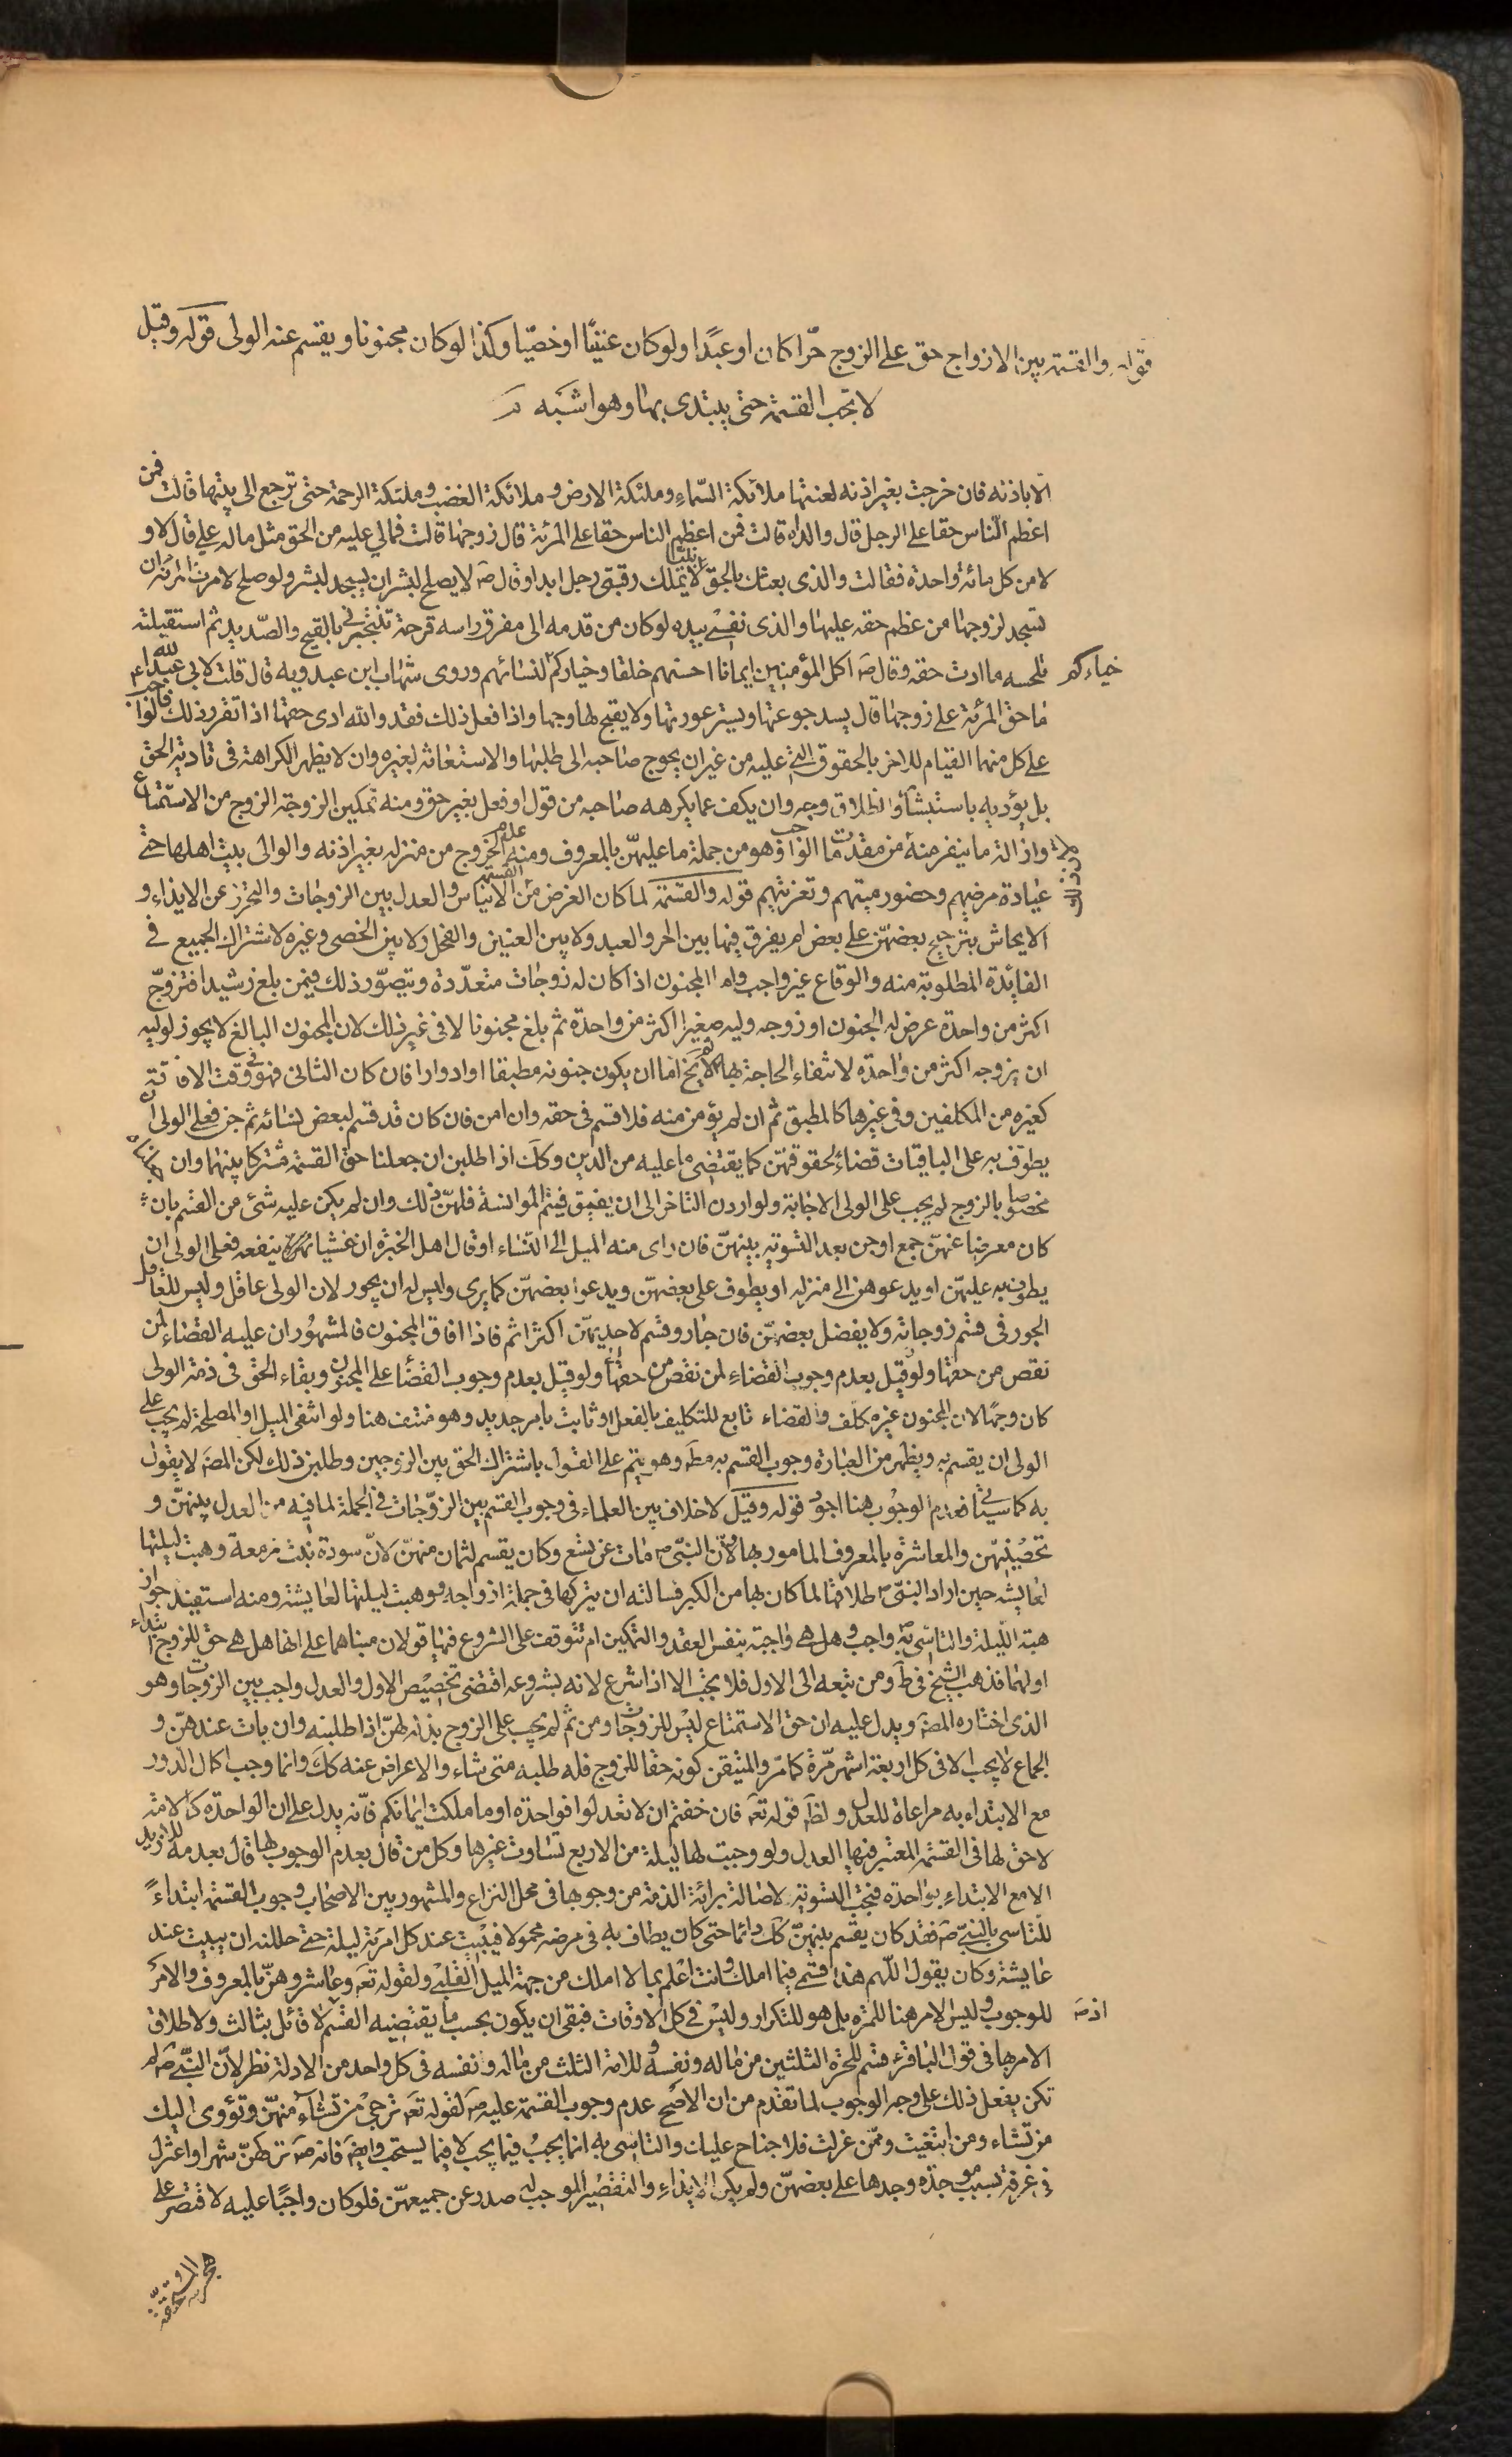 قوله والقسمة بين الازواج حق على الزوج حرّا كان او عبدًا ولو كان عنينًا او خصيّا وكذا لو كان مجنونا ويقسم عنه الولى قوله وقيل
لا تجب القسمة حتى يبتدى بها وهو اشبه
الا باذنه فان خرجت بغير اذنه لعنتها ملائكة السّماء وملئكة الارض وملائكة الغضب وملئكة الرحمة حتى ترجع الى بيتها قالت فمن
اعظم النّاس حقا على الرجل قال والداه قالت فمن اعظم الناس حقا على المرئة قال زوجها قالت فمالي عليه من الحق مثل ماله علي قال لا و
لا من كل مائة واحدة فقالت والذى بعثك بالحق لا يملك رقبتى رجل ابدا وقال صَ لا يصلح لبشر ان يسجد لبشر ولو صلح لامرت المرئة ان
تسجد لزوجها من عظم حقه عليها والذى نفسي بيده لو كان من قدمه الى مفرق راسه قرحة تنبجس بالقيح والصّديد ثم استقبلته
فلحسه ما ادت حقه وقال صَ اكمل المؤمنين ايمانا احسنهم خلقا وخياركم لنسائهم وروى شهاب ابن عبد ربه قال قلت لابي عبد الله ع
خياركم
ما حق المرئة على زوجها قال يسد جوعتها ويستر عورتها ولا يقبح لها وجها واذا فعل ذلك فقد والله ادى حقها اذا تقرر ذلك فالواجب
على كل منهما القيام للاخر بالحقوق التي عليه من غير ان يحوج صاحبه الى طلبها والاستعانة بغيره وان لا يظهر الكراهة فى تادية الحق
بل يؤديه باستبشار وانطلاق وجه وان يكف عما يكرهه صاحبه من قول او فعل بغير حق ومنه تمكين الزوجة الزوج من الاستمتاع
وازالة ما ينفر منه من مقدمات الواجب وهو من جملة ما عليهنّ بالمعروف ومنه عدم الخروج من منزله بغير اذنه والو الى بيت اهلها حتى
عيادة مرضهم وحضور ميتهم وتعزيتهم قوله والقسمة لما كان الغرض من القسمة الايناس والعدل بين الزوجات والتحرز عن الايذاء و
الايحاش بترجيح بعضهنّ على بعض لم يفرق فيها بين الحر والعبد ولا بين العنين والفحل ولا بين الخصى وغيره لاشتراك الجميع فى
الفائدة المطلوبة منه والوقاع غير واجب واما المجنون اذا كان له زوجات متعدّدة ويتصوّر ذلك فيمن بلغ رشيدا فتزوّج
اكثر من واحدة عرض له الجنون او زوجه وليه صغيرا اكثر من واحدة ثم بلغ مجنونا لا فى غير ذلك لان المجنون البالغ لا يجوز لوليه
ان يزوجه اكثر من واحدة لانتفاء الحاجة بها ثم لا يخ اما ان يكون جنونه مطبقا او ادوارا فان كان الثانى فهو فى وقت الافاقة
كغيره من المكلفين وفى غيرها كالمطبق ثم ان لم يؤمن منه فلا قسم فى حقه وان امن فان كان قد قسم لبعض نسائه ثم جن فعلى الولى ان
يطوف به على الباقيات قضاء لحقوقهنّ كما يقتضى ما عليه من الدين وكَك اذا طلبن ان جعلنا حق القسمة مشتركا بينهما وان جعلناه
مختصا بالزوج لم يجب على الولى الاجابة ولو اردن التاخر الى ان يفيق فيتم المؤانسة فلهنّ ذلك وان لم يكن عليه شئ من القسم بان
كان معرضا عنهنّ جمع او جن بعد التسوية بينهنّ فان راى منه الميل الى النّساء او قال اهل الخبرة ان غشيانهنّ ينفعه فعلى الولى ان
يطوف به عليهنّ او يدعوهن الى منزله او يطوف على بعضهنّ ويدعو بعضهنّ كما يرى وليس له ان يجور لان الولى عاقل وليس للعاقل
الجور فى قسم زوجاته ولا يفضل بعضهنّ فان جار وقسم لاحديهنّ اكثر اثم فاذا افاق المجنون فالمشهور ان عليه القضاء لمن
نقص من حقها ولو قيل بعدم وجوب القضاء لمن نقص من حقها ولو قيل بعدم وجوب القضاء على المجنون وبقاء الحق فى ذمة الولى
كان وجها لان المجنون غير مكلف والقضاء تابع للتكليف بالفعل او ثابت بامر جديد وهو منتف هنا ولو انتفى الميل او المصلحة لم يجب على
الولى ان يقسم به ويظهر من العبارة وجوب القسم به مطَ وهو يتم على القول باشتراك الحق بين الزوجين وطلبن ذلك لكن المصَ لا يقول
به كما سياتى فعدم الوجوب هنا اجود قوله وقيل لا خلاف بين العلماء فى وجوب القسم بين الزوّجات فى الجملة لما فيه من العدل بينهنّ و
تحصينهنّ والمعاشرة بالمعروف المامور بها ولانّ النبّى ص مات عن تسع وكان يقسم لثمان منهنّ لانّ سودة بنت زمعة وهبت ليلتها
لعايشه حين اراد النبّى ص طلاقها لما كان بها من الكبر فسالته ان يتركها فى جملة ازواجه ووهبت ليلتها لعايشة ومنه استفيد جواز
هبة اللّيلة والتاسّى به واجب وهل هى واجبة بنفس العقد والتمكين ام تتوقف على الشروع فيها قولان مبناهما على انها هل هى حق للزوج ابتداء
او لهما فذهب الشيخ فى طَ ومن تبعه الى الاول فلا يجب الا اذا شرع لانه بشروعه اقتضى تخصيص الاول والعدل واجب بين الزوجات وهو
الذى اختاره المصَ ويدل عليه ان حق الاستمتاع ليس للزوجات ومن ثم لم يجب على الزوج بذله لهنّ اذا طلبنه وان بات عندهنّ و
الجماع لا يجب الا فى كل اربعة اشهر مّرة كما مّر والمتيقن كونه حقا للزوج فله طلبه متى شاء والاعراض عنه كَك وانما وجب اكمال الدّور
مع الابتداء به مراعاة للعدل ولظَ قوله تعَ فان خفتم ان لا تعدلوا فواحدة او ما ملكت ايمانكم فانّه يدل على ان الواحدة كالامة
لا حق لها فى القسمة المعتبر فيها العدل ولو وجبت لها ليلة من الاربع لساوت غيرها وكل من قال بعدم الوجوب لها قال بعدمه للازيد
الا مع الابتداء بواحدة فيجب التسوية لاصالة برائة الذمة من وجوبها فى محل النزاع والمشهور بين الاصحاب وجوب القسمة ابتداءً
للتاسى بالنبّى صَ فقد كان يقسم بينهنّ كَك دائما حتى كان يطاف به فى مرضه محمولا فيبيت عند كل امرئة ليلة حتى حللنه ان يبيت عند
عايشة وكان يقول اللّهم هذا قسمى فيما املك وانت اعلم بما لا املك من جهة الميل القلبى ولقوله تعَ وعاشروهنّ بالمعروف والامر
للوجوب وليس الامر هنا للمرّة بل هو للتكرار وليس فى كل الاوقات فبقى ان يكون بحسب ما يقتضيه القسم اذ لا قائل بثالث ولاطلاق
الامر بها فى قول الباقر ع قسم للحرة الثلثين من ماله ونفسه وللامة الثلث من ماله ونفسه فى كل واحد من الادلة نظر لانّ النبّى صَ لم
تكن يفعل ذلك على وجه الوجوب لما تقدم من ان الاصح عدم وجوب القسمة عليه صَ لقوله تعَ ترجى من تشاء منهنّ وتؤوى اليك
من تشاء ومن ابتغيت وممّن عزلت فلا جناح عليك والتاسى به انما يجب فيما يجب لا فيما يستحب وايضَ فانه صَ تركهنّ شهرا واعتزل
فى غرفة بسبب موجدة وجدها على بعضهنّ ولم يكن الايذاء والتقصير الموجب له صدر عن جميعهنّ فلو كان واجبًا عليه لاقتصر على